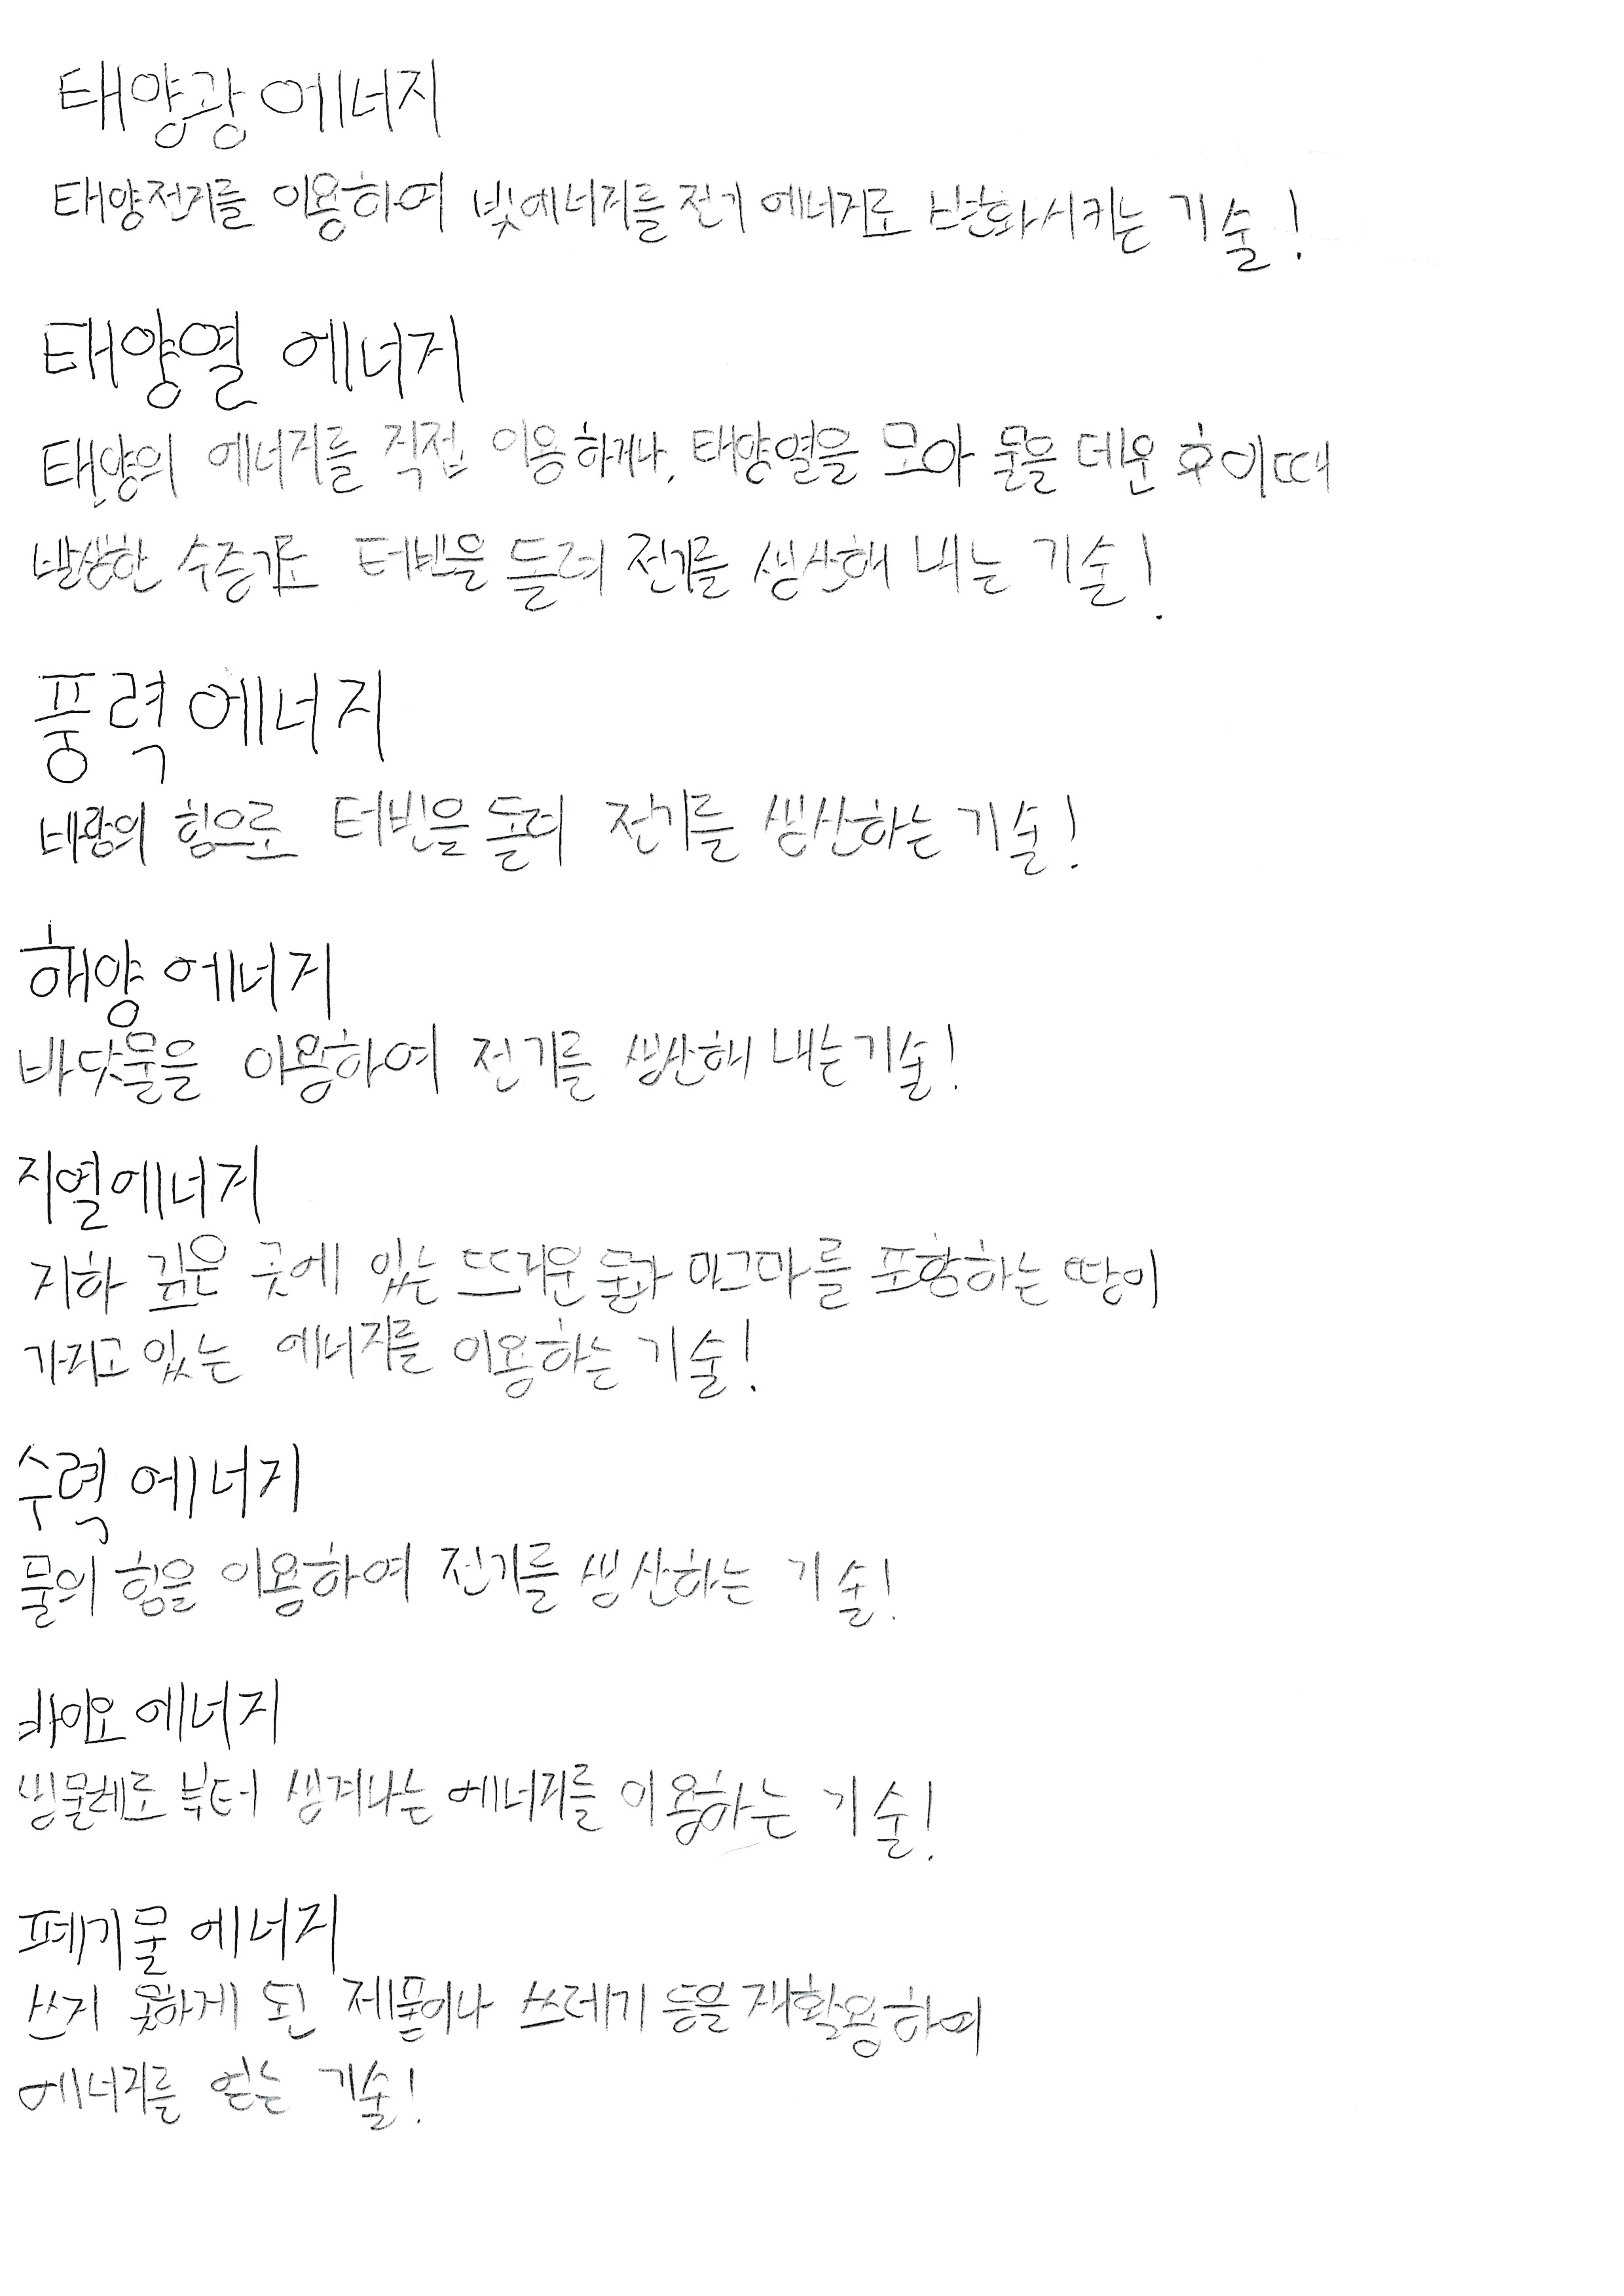 태양광 에너지
태양전지를 이용하여 빛에너지를 전기 에너지로 변화시키는 기술!
태양열 에너지
태양의 에너지를 직접 이용하거나, 태양열을 모아 물을 데운 후 이때
발생한 수증기로 터빈을 돌려 전기를 생산해 내는 기술!
풍력 에너지
바람의 힘으로 터빈을 돌려 전기를 생산하는 기술!
해양 에너지
바닷물을 이용하여 전기를 생산해 내는 기술!
지열에너지
지하 깊은 곳에 있는 뜨거운 물과 마그마를 포함하는 땅이
가지고 있는 에너지를 이용하는 기술!
수력 에너지
물의 힘을 이용하여 전기를 생산하는 기술!
바이오 에너지
생물체로 부터 생겨나는 에너지를 이용하는 기술!
폐기물 에너지
쓰지 못하게 된 제품이나 쓰레기 등을 재활용하여
에너지를 얻는 기술!